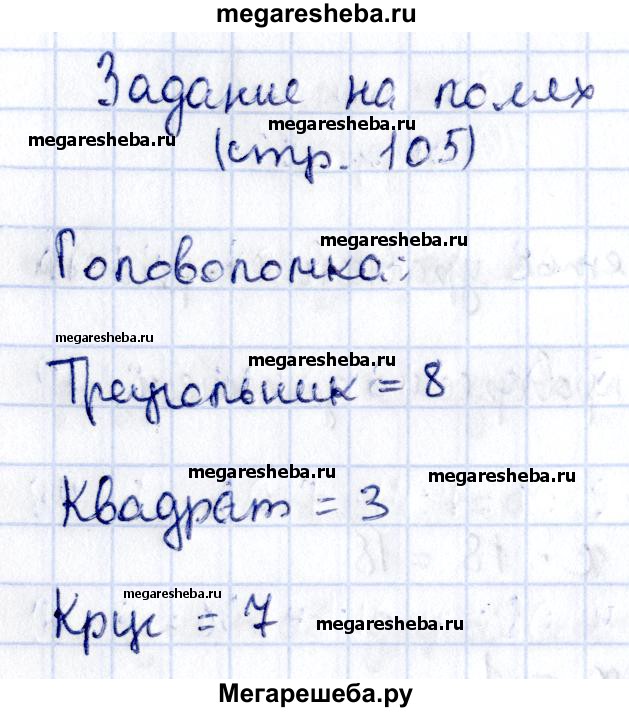 megaresheba.ru
Задание на полях
megaresheba.ru
megaresheba.ru
(стр. 105)
megaresheba.ru
Головоломка:
megaresheba.ru
megaresheba.ru
Треугольник = 8
megaresheba.ru
megaresheba.ru
Квадрат = 3
megaresheba.ru
Круг = 7
megaresheba.ru
Мегарешеба.ру